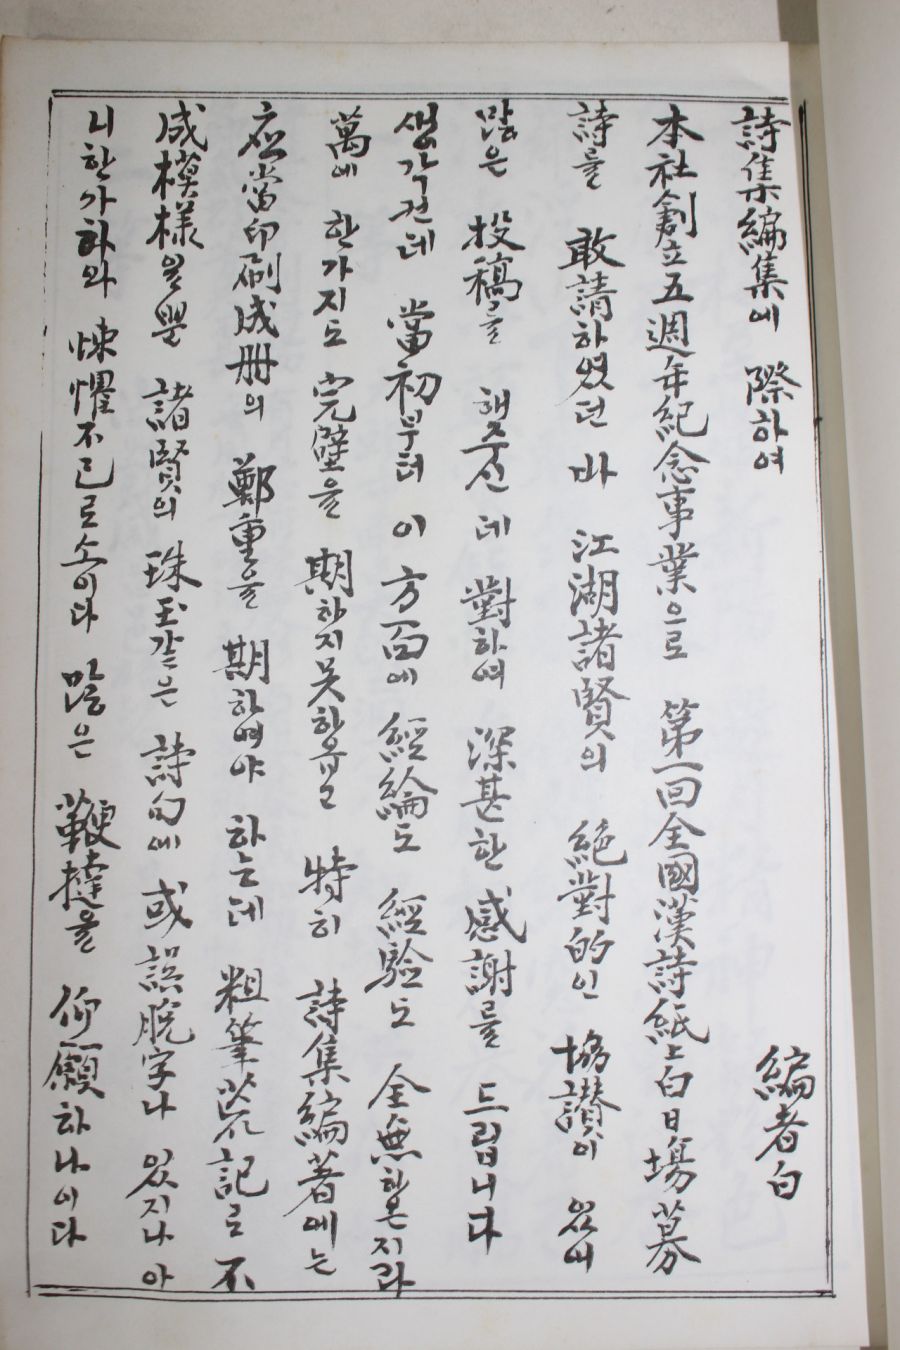 詩集編集에 際하여 編者白
本社創立五週年紀念事業으로 第一回全國漢詩紙上白日場募
詩를 敢請하였던 바 江湖諸賢의 絶對的인 協讃이 있어
많은 投稿를 해주신 데 對하여 深甚한 感謝를 드립니다
생각건데 當初부터 이 方面에 經綸도 經驗도 全無한본지라
萬에 한가지도 完璧을 期하지못하옵고 特히 詩集編著에는
應當印刷成册의 鄭重을 期하여야 하는데 粗筆荒記로 不
成模樣을뿐 諸賢의 珠玉같은 詩句에 或 誤脫字나 있지나 아
니한가하와 悚懼不已로소이다 많은 鞭撻을 仰願하나이다